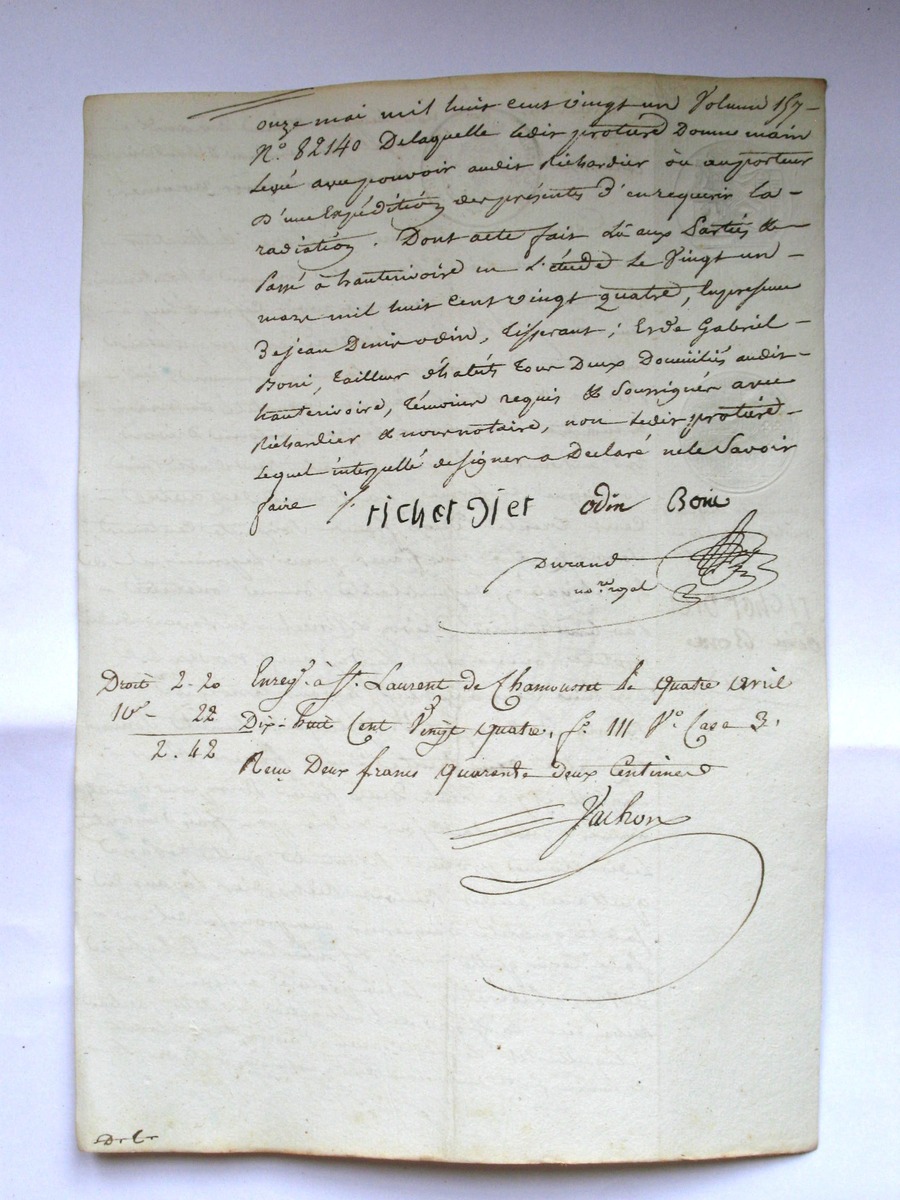 onze mai mil huit cent vingt un Volume 157 -
N.º 82140 Delaquelle ledit protière Donne main
levé avec pouvoir audit Richardier ou au porteur
D'une Expédition des présentes d'en requerir la -
radiation. Dont acte fait Lû aux Parties &
Passé à hauterivoire en L'étude Le Vingt un -
marse mil huit cent vingt quatre, En présence
De jean Denis odin, Tisserant; Et de Gabriel -
Boni, Tailleur d'habits tous Deux Domiciliés audit -
hauterivoire, témoins requis & Soussignés avec
Richardier & nous notaire, non Ledit protière -
Lequel interpellé de signer a Declaré ne le Savoir
faire ./.
richerdier odin Boni
Durand
no.re royal
Droit 2-20 Enreg.é à S.t Laurent de Chamousset le quatre avril
10.e - 22 Dix-huit Cent Vingt quatre, f.º 111 V.º Case 3.
2.42 Recu Deux francs quarente deux Centimes
Vachon